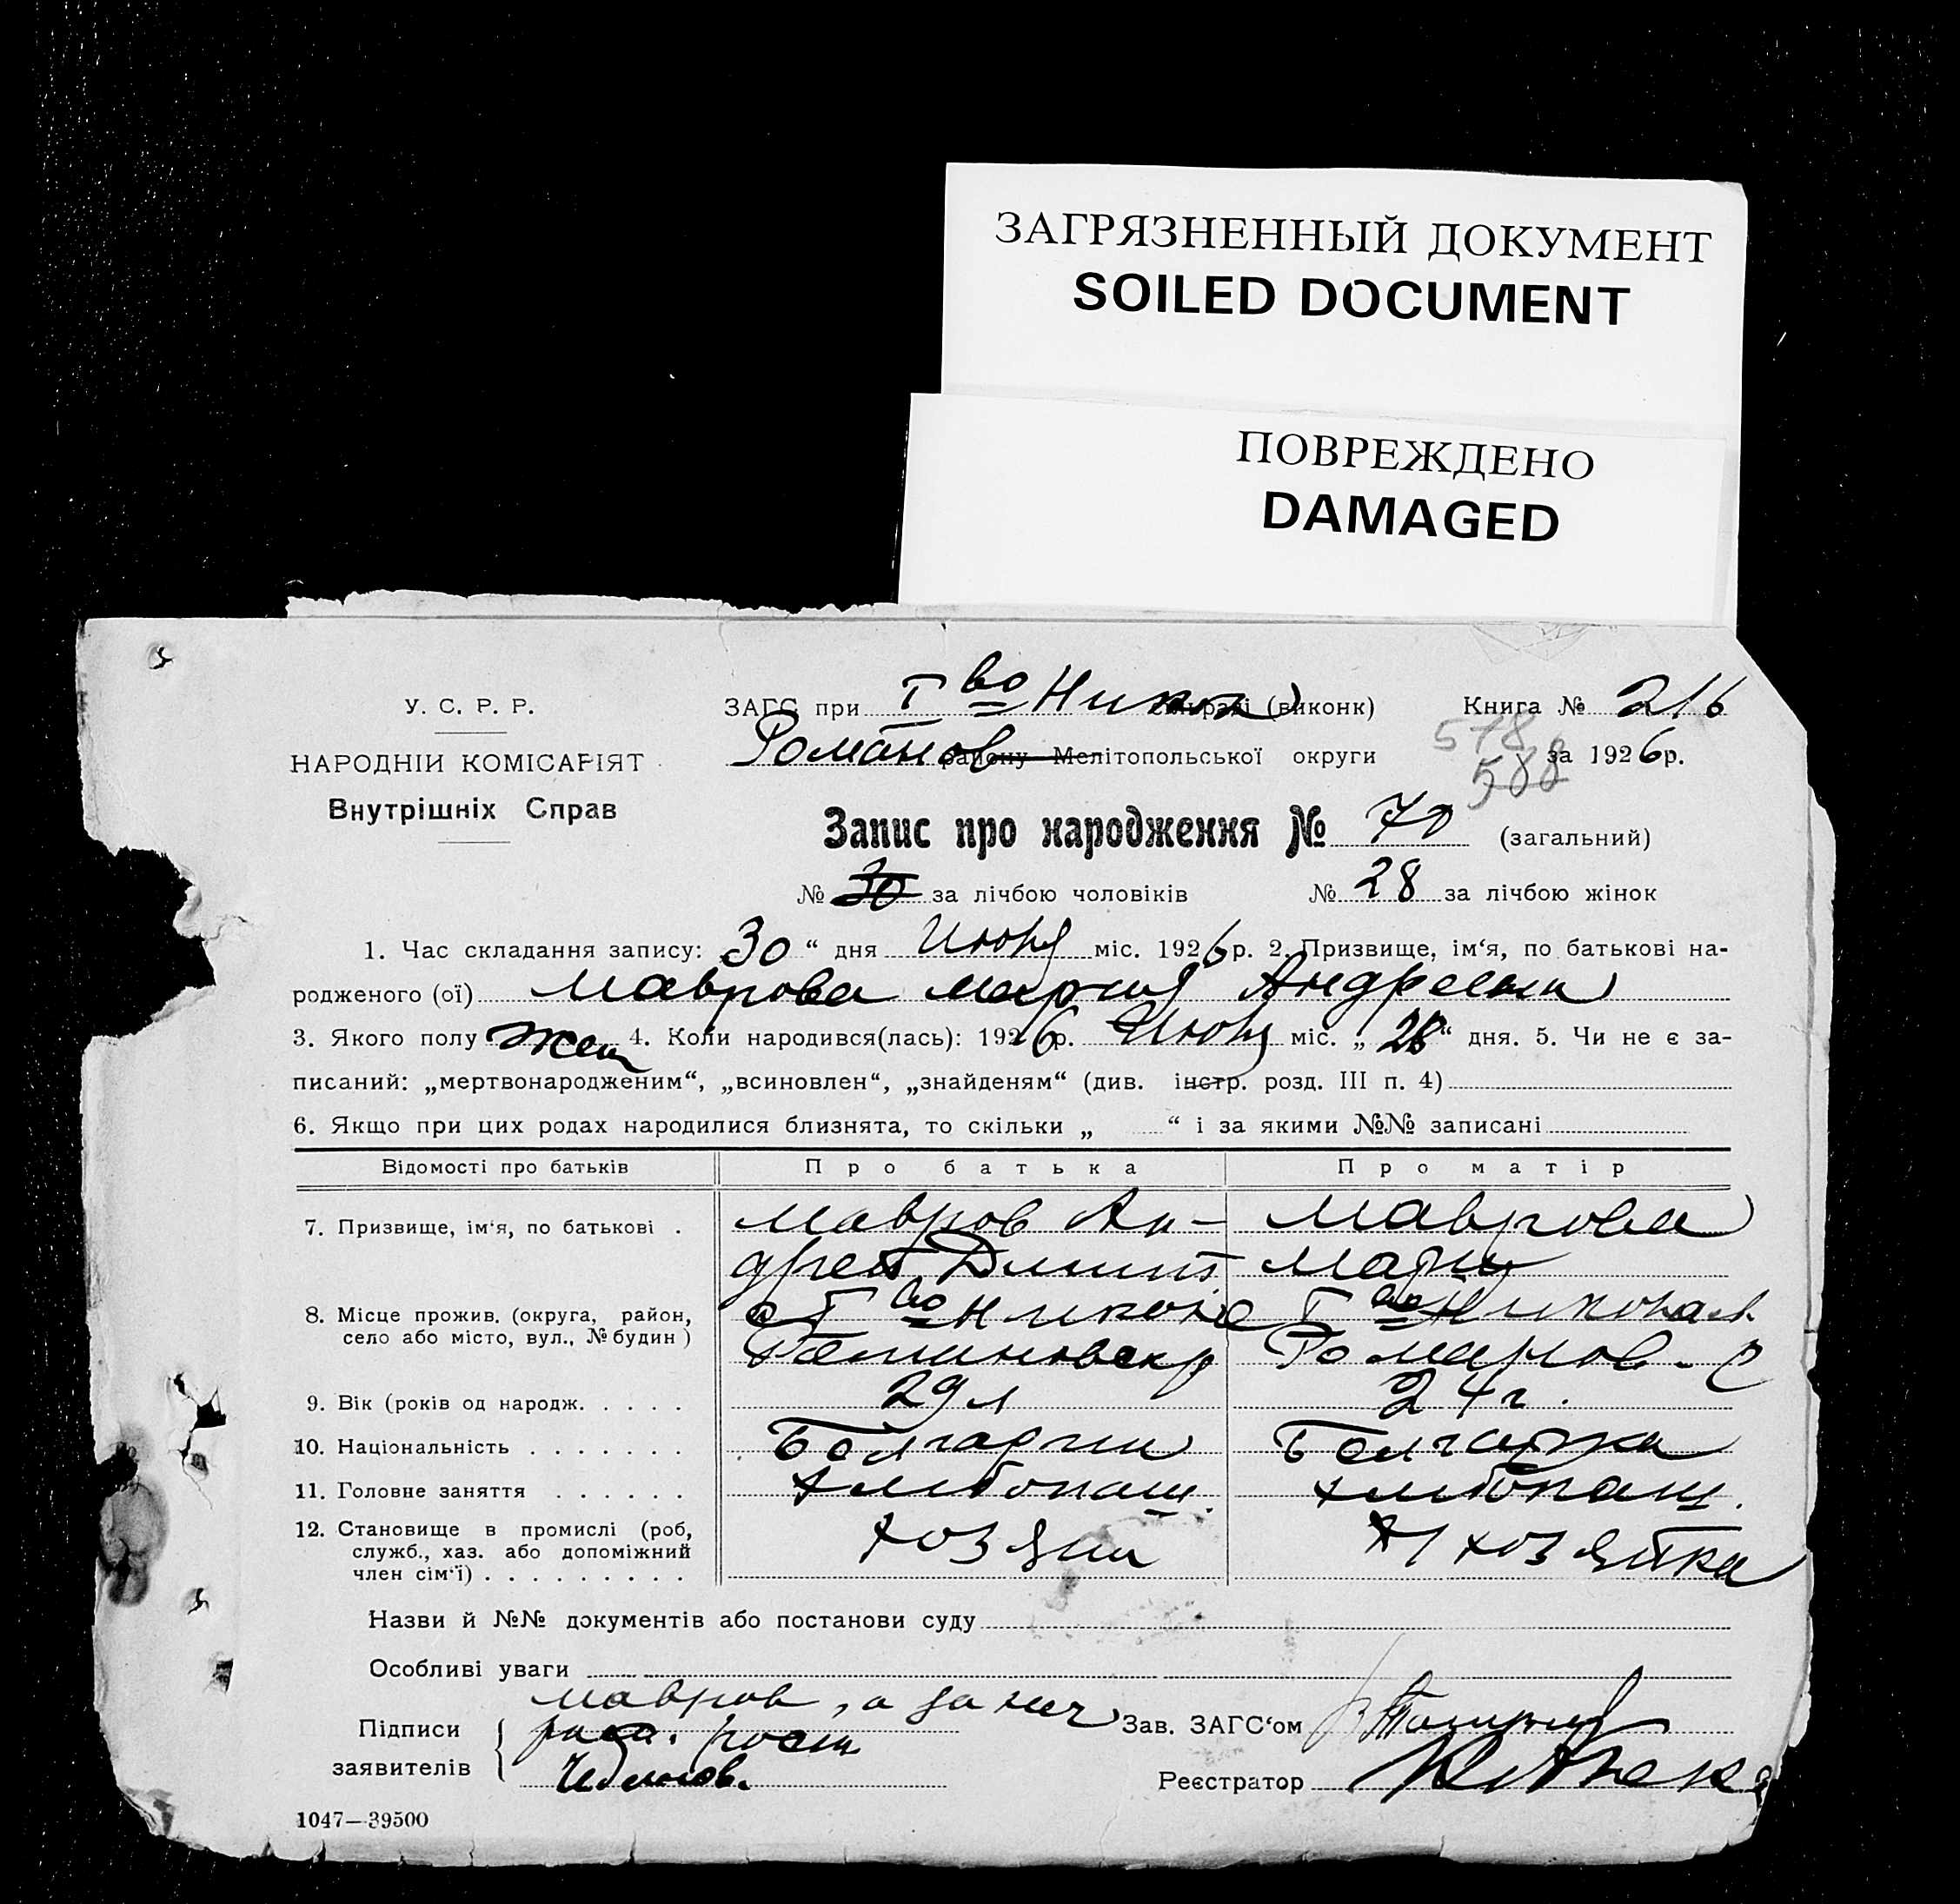 ЗАГРЯЗНЕННЫЙ ДОКУМЕНТ
SOILED DOCUMENT
ПОВРЕЖДЕНО
DAMAGED
У. С. Р. Р.
НАРОДНІЙ КОМІСАРІЯТ
Внутрішніх Справ
ЗАГС при (виконк)
Романов району Мелітопольської округи
Книга № 216
578
588
за 1926 р.
Запис про народження № 70 (загальний)
№ 30 за лічбою чоловіків № 28 за лічбою жінок
1. Час складання запису: 30 “ дня Июня міс. 1926 р. 2. Призвище, ім‘я, по батькові на-
родженого (ої) Маврова Мария Андреевн
3. Якого полу жен 4. Коли народився(лась): 1926 р. Июня міс. „ 28 “ дня. 5. Чи не є за-
писаний: „мертвонародженим“, „всиновлен“, „знайденям“ (див. інстр. розд. III п. 4)
6. Якщо при цих родах народилися близнята, то скільки „ “ і за якими №№ записані
Відомості про батьків Про батька Про матір
7. Призвище, ім‘я, по батькові . Мавров Ан- Маврова
дрей Димит Мари
8. Місце прожив. (округа, район,
село або місто, вул., № будин)
Романов-
9. Вік (років од народж. . . . . 29 л 24 г.
10. Національність . . . . . . . Болгарин Болгарка
11. Головне заняття . . . . . . хлибопаш. хлибопаш.
12. Становище в промислі (роб,
служб., хаз. або допоміжний
член сім‘ї) . . . . . . . . . хозяин хозяйка
Назви й №№ документів або постанови суду
Особливі уваги
Мавров, а за
Підписи
заявителів
Зав. ЗАГС‘ом
Реєстратор
1047—39500